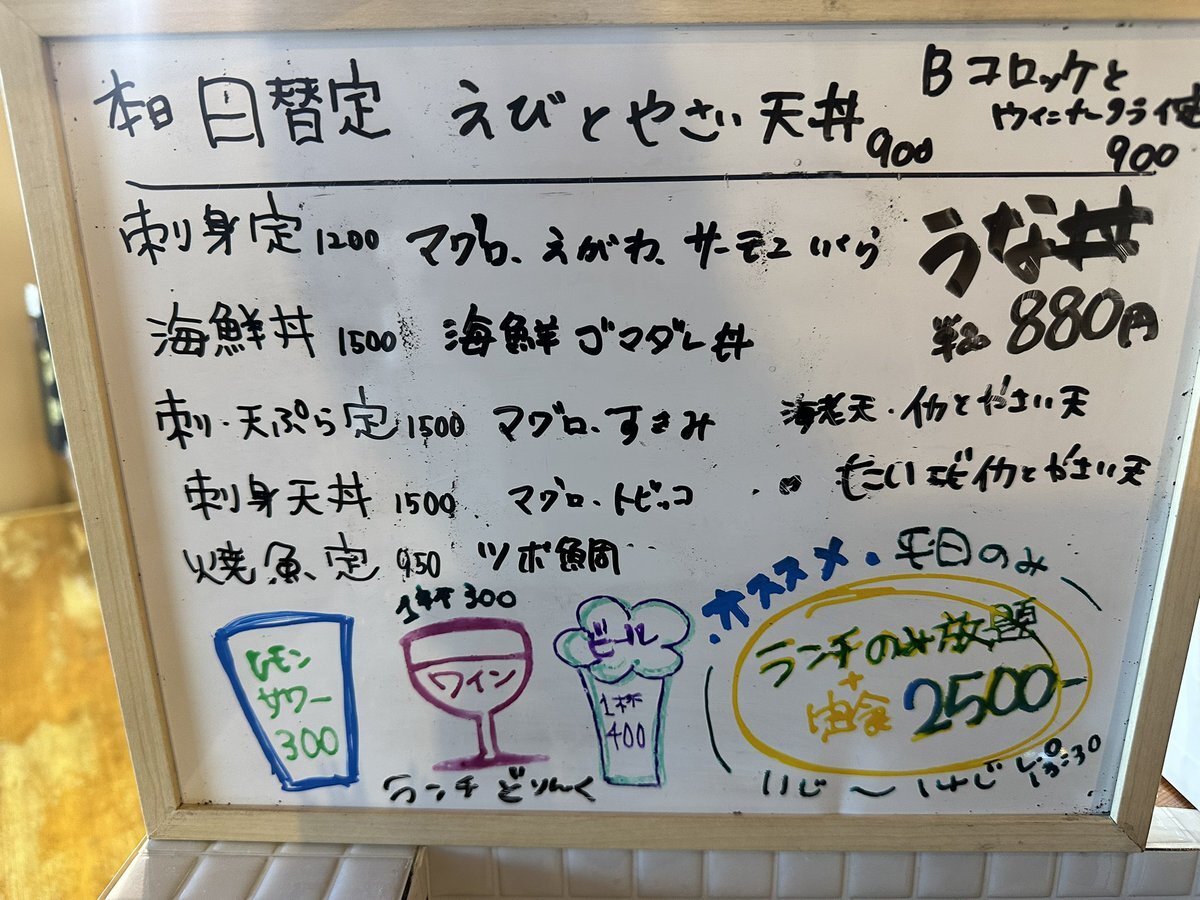 本日 日替定 えびとやさい天丼 900
Bコロッケと
ウィンナーフライ定
900
刺身定 1200 マグロ、えがわ、サーモン いくら
うな丼
880円
海鮮丼 1500 海鮮ゴマダレ丼
刺・天ぷら定 1500 マグロ、すきみ 海老天・イカとやさい天
刺身天丼 1500 マグロ、トビッコ
イカとやさい天
焼魚定 950 ツボ魚周
オススメ 平日のみ
レモン
サワー
300
1杯300
ワイン
ビール
1杯
400
ランチのみ放題
+
2500-
ランチ どりんく
11じ 〜 14じ
13:30